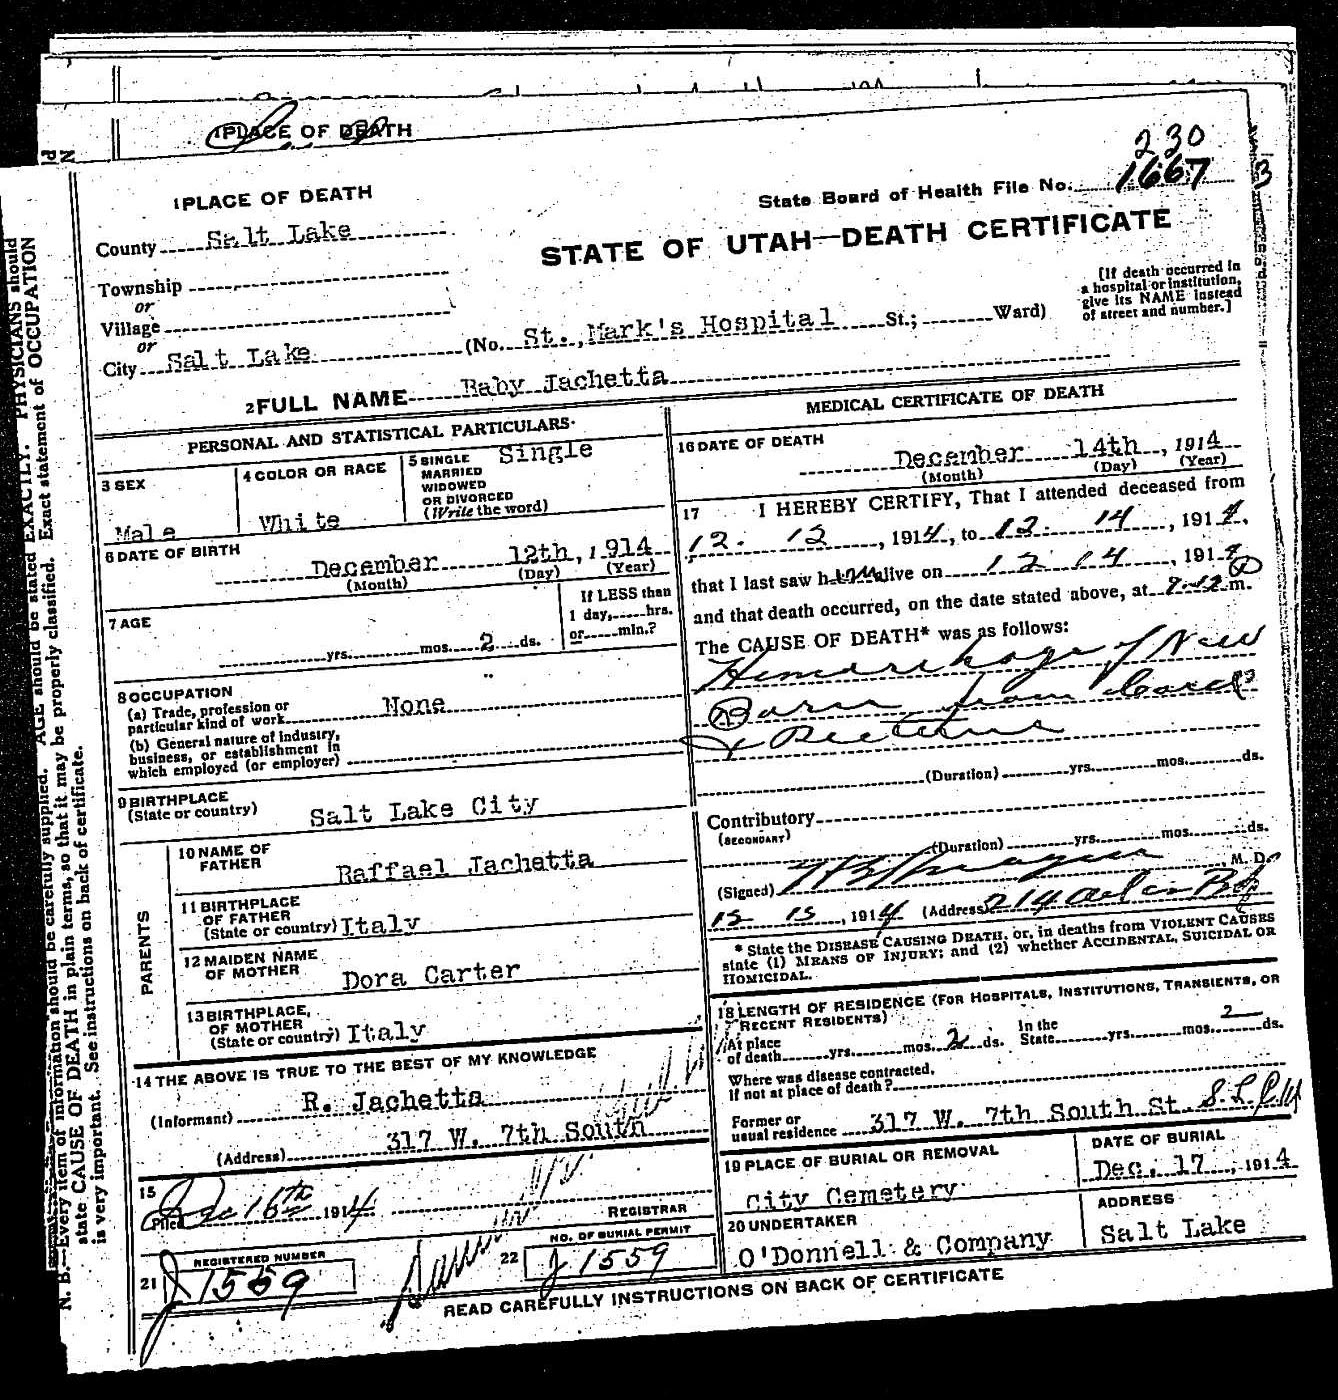 1 PLACE OF DEATH
230
1 PLACE OF DEATH
State Board of Health File No. 1667 3
County Salt Lake
STATE OF UTAH—DEATH CERTIFICATE
Township
or
Village
or
City Salt Lake (No. St., Mark's Hospital St.; Ward)
[If death occurred in
a hospital or institution,
give its NAME instead
of street and number.]
2 FULL NAME Baby Jachetta
PERSONAL AND STATISTICAL PARTICULARS
3 SEX
Male
4 COLOR OR RACE
White
5 SINGLE
MARRIED
WIDOWED
OR DIVORCED
(Write the word)
Single
6 DATE OF BIRTH
December 12th, 1914
(Month) (Day) (Year)
7 AGE
yrs. mos. 2 ds.
If LESS than
1 day, hrs.
or min.?
8 OCCUPATION
(a) Trade, profession or
particular kind of work None
(b) General nature of industry,
business, or establishment in
which employed (or employer)
9 BIRTHPLACE
(State or country) Salt Lake City
PARENTS
10 NAME OF
FATHER Raffael Jachetta
11 BIRTHPLACE
OF FATHER
(State or country) Italy
12 MAIDEN NAME
OF MOTHER Dora Carter
13 BIRTHPLACE,
OF MOTHER
(State or country) Italy
14 THE ABOVE IS TRUE TO THE BEST OF MY KNOWLEDGE
(Informant) R. Jachetta
(Address) 317 W. 7th South
15
Filed Dec 16th 1914
REGISTRAR
21 REGISTERED NUMBER
J 1559
22 NO. OF BURIAL PERMIT
J 1559
MEDICAL CERTIFICATE OF DEATH
16 DATE OF DEATH
December 14th, 1914
(Month) (Day) (Year)
17 I HEREBY CERTIFY, That I attended deceased from
12. 12, 1914, to 12. 14, 1914,
that I last saw him alive on 12 14, 1914
and that death occurred, on the date stated above, at 7.12 P m.
The CAUSE OF DEATH* was as follows:
Hemorrhage of New
Born from Cord
& Rectum
(Duration) yrs. mos. ds.
Contributory
(SECONDARY)
(Duration) yrs. mos. ds.
(Signed) M. D.
15, 1914 (Address) 214
* State the DISEASE CAUSING DEATH, or, in deaths from VIOLENT CAUSES
state (1) MEANS OF INJURY; and (2) whether ACCIDENTAL, SUICIDAL OR
HOMICIDAL.
18 LENGTH OF RESIDENCE (FOR HOSPITALS, INSTITUTIONS, TRANSIENTS, OR
RECENT RESIDENTS)
At place
of death yrs. mos. 2 ds.
In the
State yrs. mos. 2 ds.
Where was disease contracted,
if not at place of death?
Former or
usual residence 317 W. 7th South St. S.L.C. U
19 PLACE OF BURIAL OR REMOVAL
City Cemetery
DATE OF BURIAL
Dec. 17, 1914
20 UNDERTAKER
O'Donnell & Company
ADDRESS
Salt Lake
READ CAREFULLY INSTRUCTIONS ON BACK OF CERTIFICATE
N. B.—Every item of information should be carefully supplied. AGE should be stated EXACTLY. PHYSICIANS should
state CAUSE OF DEATH in plain terms, so that it may be properly classified. Exact statement of OCCUPATION
is very important. See instructions on back of certificate.